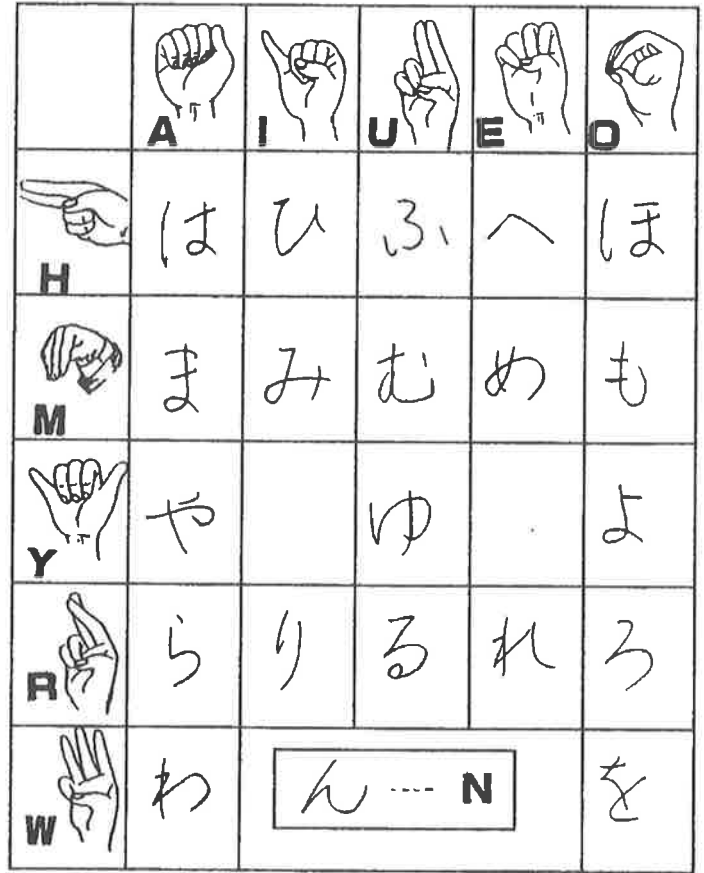 A I U E O
H は ひ ふ へ ほ
M ま み む め も
Y や ゆ よ
R ら り る れ ろ
W わ ん ---- N を